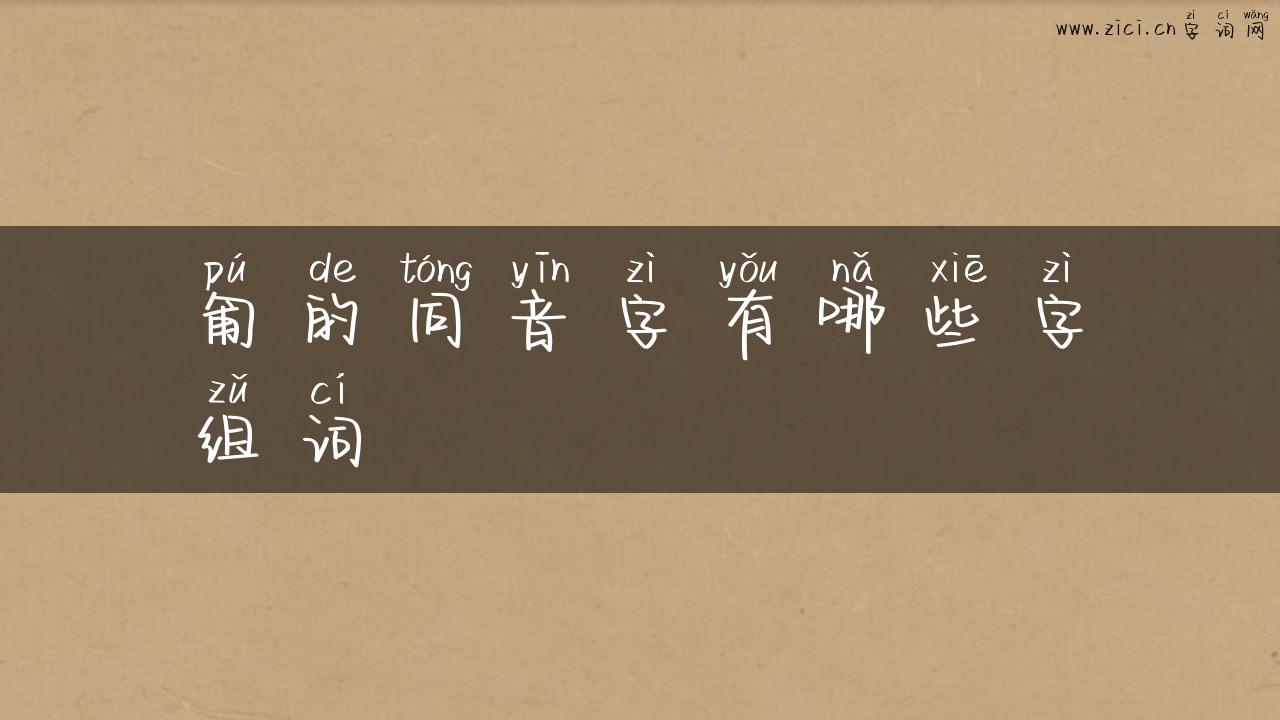 zì cí wǎng
www.zici.cn 字词网
pú de tóng yīn zì yǒu nǎ xiē zì
匍的同音字有哪些字
zǔ cí
组词